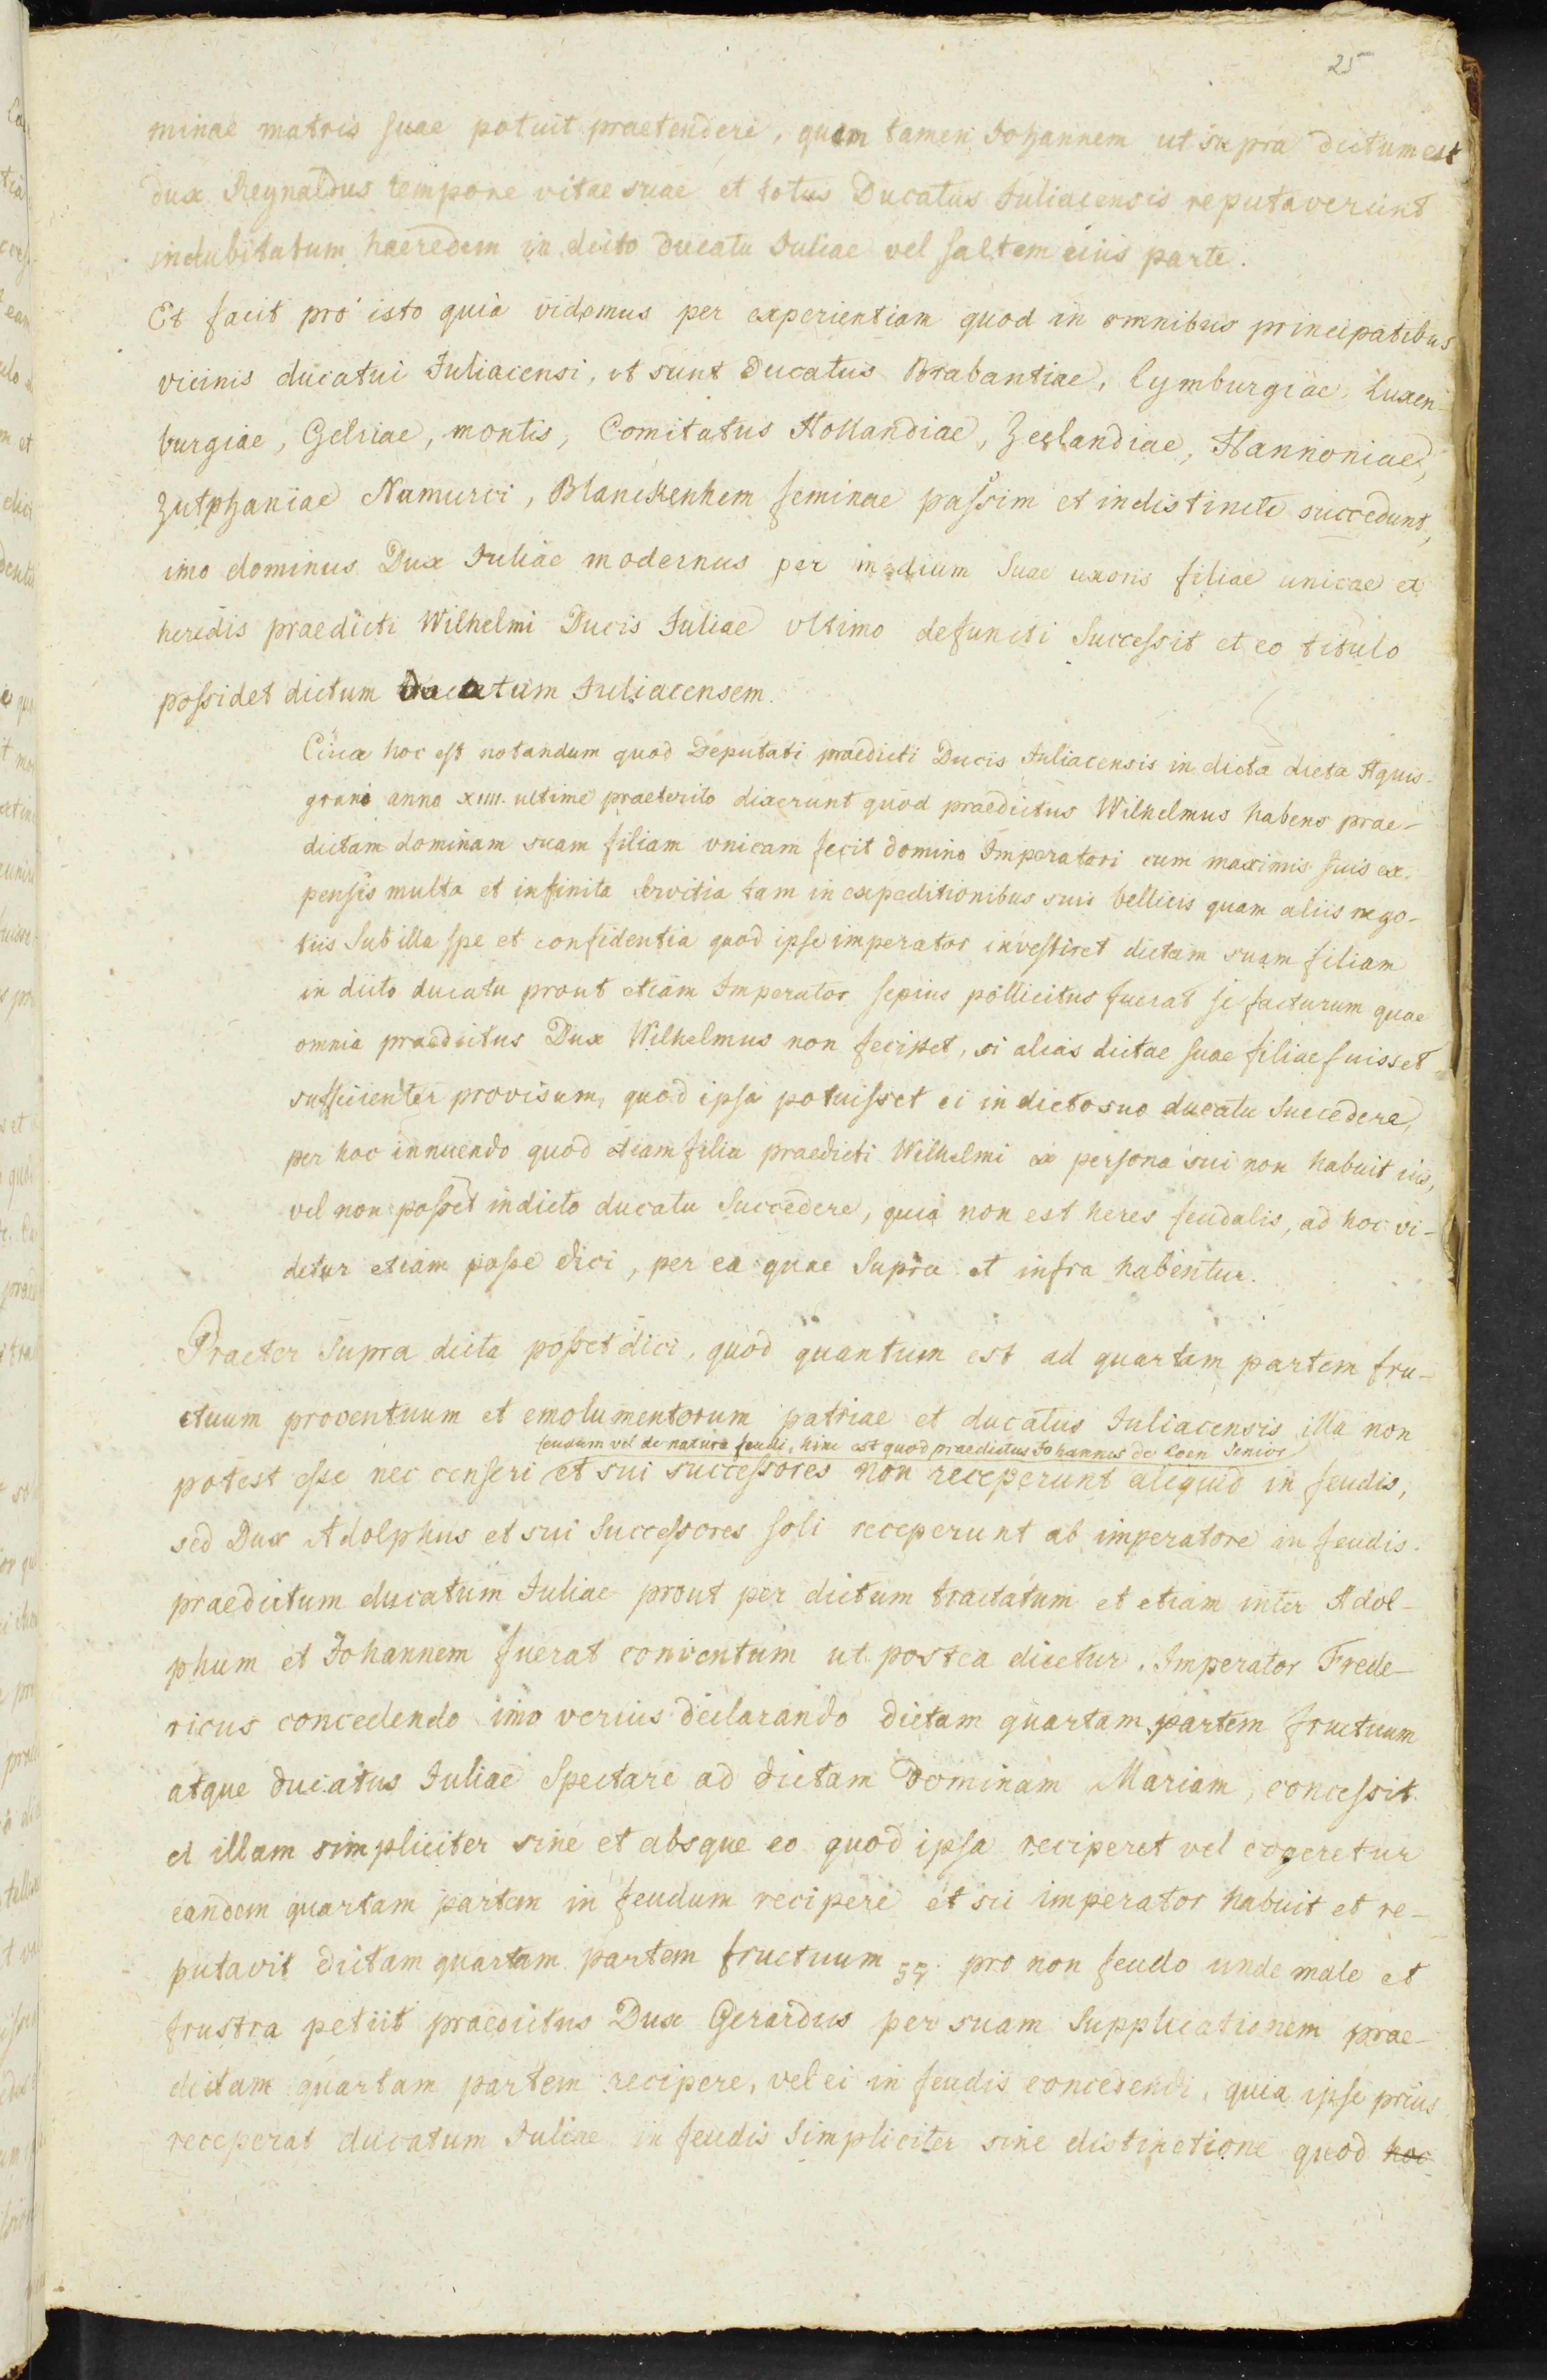 25
minae matris suae potuit praetendere, quem tamen Johannem ut supra dictum est
dux Reynaldus tempore vitae suae et totus Ducatus Juliacensis reputaverunt
indubitatum haeredem in dicto ducatu Juliae vel saltem eiüs parte.
Et facit pro isto quia videmus per experientiam quod in omnibus principatibus
vicinis ducatui Juliacensi, ut sunt Ducatus Brabantiae, Lymburgiae, Luxen-
burgiae, Gelriae, montis, Comitatus Hollandiae, Zeelandiae, Hannoniae,
Zutphaniae Namurci, Blanckenhem feminae passim et indistincte succedunt,
imo dominus Dux Juliae modernus per medium suae uxoris filiae unicae et
heredis praedicti Wilhelmi Ducis Juliae ultimo defuncti successit et eo titulo
possidet dictum Ducatum Juliacensem.
Circa hoc est notandum quod Deputati praedicti Ducis Juliacensis in dicta dieta Aquis-
grani anno XIIII. ultime praeterito dixerunt quod praedictus Wilhelmus habens prae-
dictam dominam suam filiam unicam fecit domino Imperatori cum maximis suis ex-
pensis multa et infinita servitia tam in expeditionibus suis bellicis quam aliis nego-
tiis sub illa spe et confidentia quod ipse imperator investiret dictam suam filiam
in dicto ducatu prout etiam Imperator sepius pollicitus fuerat se facturum quae
omnia praedictus Dux Wilhelmus non fecisset, si alias dictae suae filiae fuisset
sufficienter provisum, quod ipsa potuisset ei in dicto suo ducatu succedere,
per hoc innuendo quod etiam filia praedicti Wilhelmi ex persona sui non habuit ius,
vel non posset in dicto ducatu succedere, quia non est heres feudalis, ad hoc vi-
detur etiam posse dici, per ea quae supra et infra habentur.
Praeter supra dicta posset dici, quod quantum est ad quartam partem fru-
ctuum proventuum et emolumentorum patriae et ducatus Juliacensis illa non
feudum vel de natura feudi, hinc est quod praedictus Johannes de Loen Senior
potest esse nec censeri et sui successores non receperunt aliquid in feudis,
sed Dux Adolphus et sui successores soli receperunt ab imperatore in feudis.
praedictum ducatum Juliae prout per dictum tractatum et etiam inter Adol-
phum et Johannem fuerat conventum ut postea dicetur. Imperator Frede-
ricus concedendo imo verius declarando dictam quartam partem fructuum
atque ducatus Juliae spectare ad dictam Dominam Mariam, concessit
ei illam simpliciter sine et absque eo quod ipsa reciperet vel cogeretur
eandem quartam partem in feudum recipere et sic imperator habuit et re-
putavit dictam quartam partem fructuum pro non feudo unde male et
frustra petiit praedictus Dux Gerardus per suam supplicationem prae-
dictam quartam partem recipere, vel ei in feudis concedendi, quia ipse prius
receperat ducatum Juliae in feudis simpliciter sine distinctione quod hoc